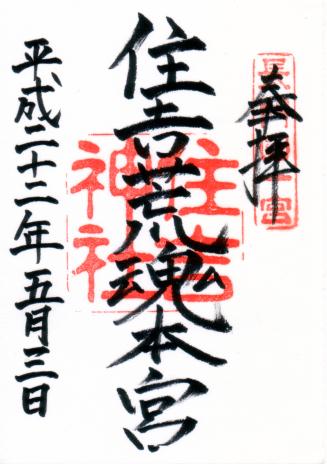 奉拝
住吉荒魂本宮
住吉神社
平成二十二年五月三日